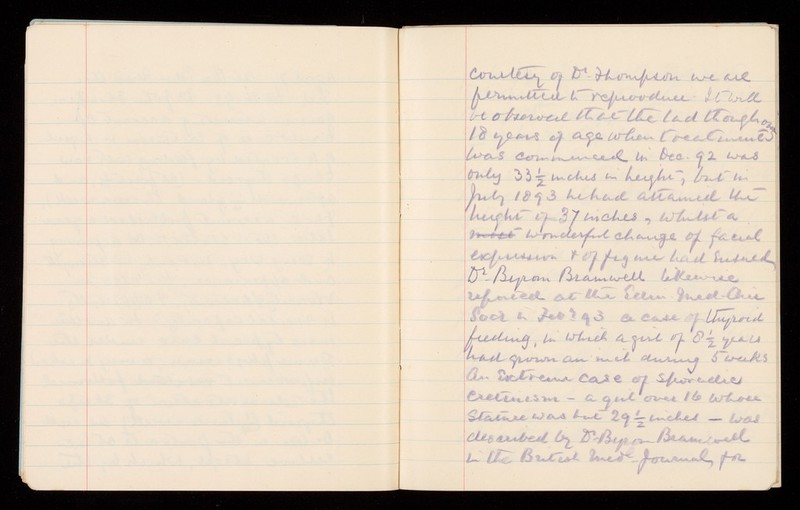 courtesy of Dr. Thompson we are
permitted to reproduce. It will
be observed that the lad though over
18 years of age when treatment
was commenced in Dec. 92 was
only 33 1/2 inches in height, but in
July 1893 he had attained the
height of 37 inches, whilst a
most wonderful change of facial
expression & of figure had ensued
Dr. Byrom Bramwell likewise
reported at the Edin. Med-Chir
Socy in Feby 93 a case of thyroid
feeding, in which a girl of 8 1/2 years
had grown an inch during 5 weeks
An Extreme case of Sporadic
Cretinism - a girl over 16 whose
Stature was but 29 1/2 inches — was
described by Dr. Byrom Bramwell
in the British Medl. Journal, for